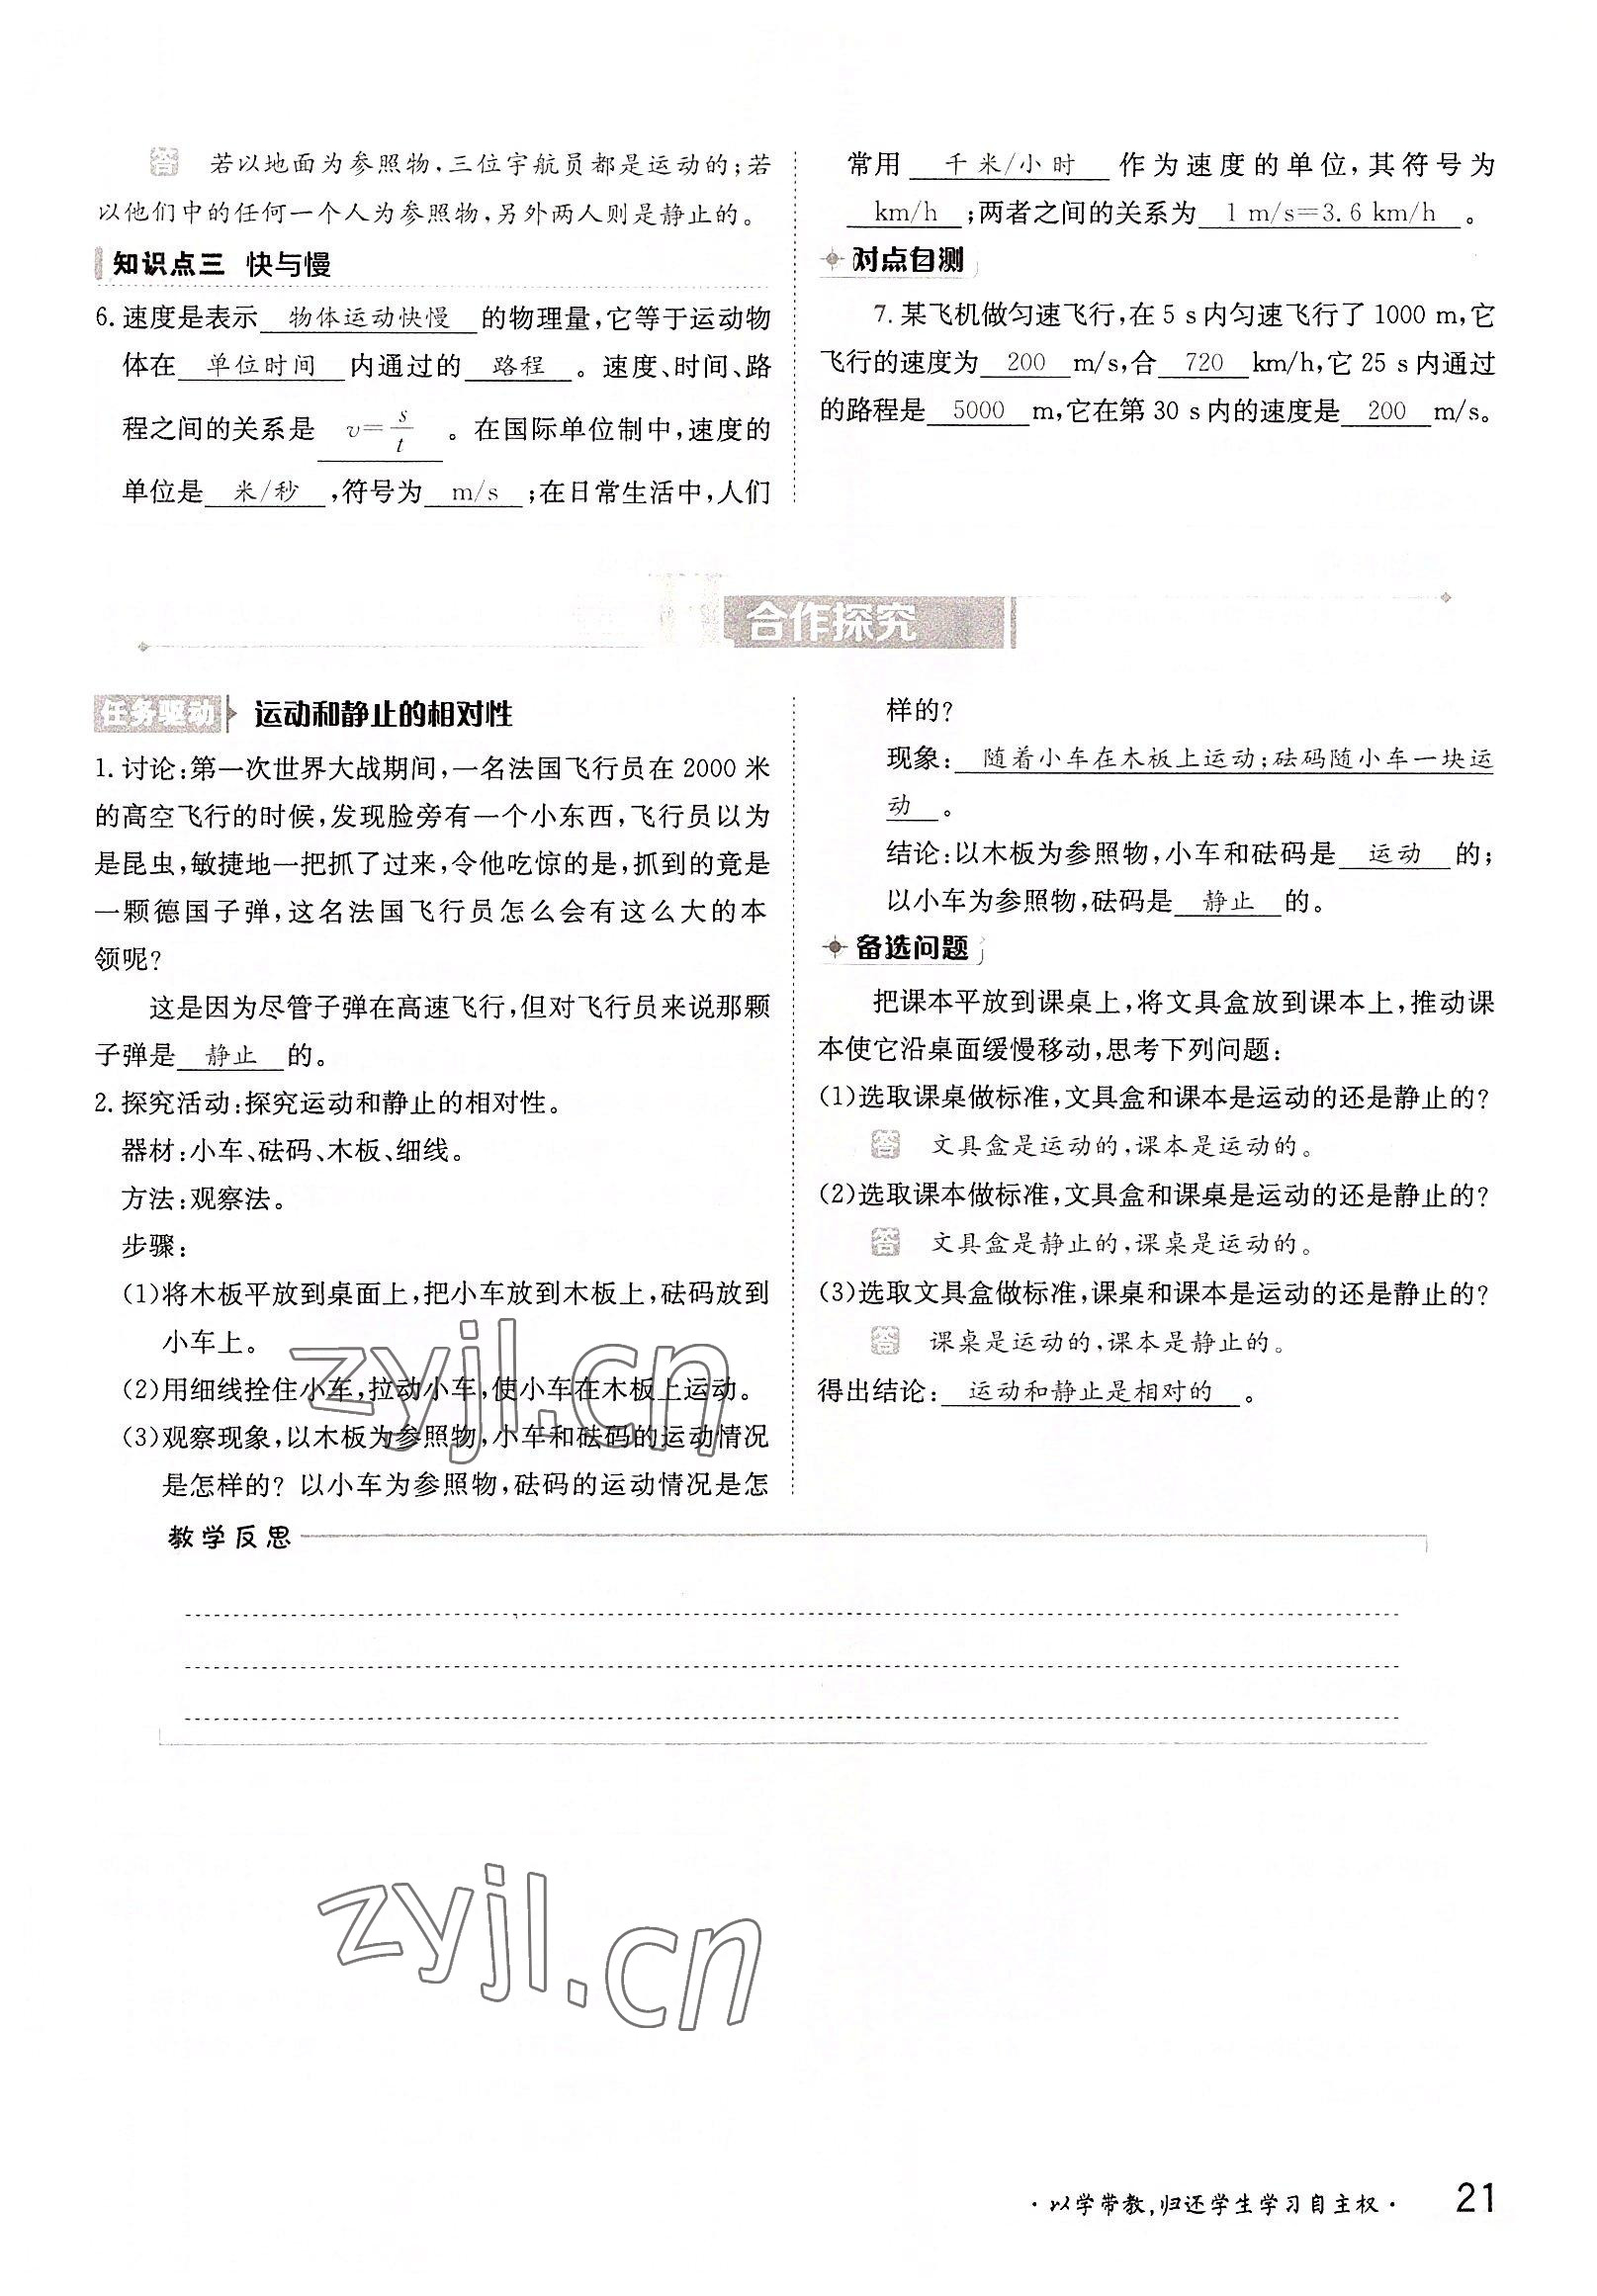 答 若以地面为参照物,三位宇航员都是运动的;若
以他们中的任何一个人为参照物,另外两人则是静止的。
知识点三 快与慢
6. 速度是表示 物体运动快慢 的物理量,它等于运动物
体在 单位时间 内通过的 路程 。速度、时间、路
程之间的关系是 v=s/t 。在国际单位制中,速度的
单位是 米/秒 ,符号为 m/s ;在日常生活中,人们
常用 千米/小时 作为速度的单位,其符号为
km/h ;两者之间的关系为 1 m/s=3.6 km/h 。
对点自测
7. 某飞机做匀速飞行,在 5 s 内匀速飞行了 1000 m,它
飞行的速度为 200 m/s,合 720 km/h,它 25 s 内通过
的路程是 5000 m,它在第 30 s 内的速度是 200 m/s。
合作探究
任务驱动 运动和静止的相对性
1. 讨论:第一次世界大战期间,一名法国飞行员在 2000 米
的高空飞行的时候,发现脸旁有一个小东西,飞行员以为
是昆虫,敏捷地一把抓了过来,令他吃惊的是,抓到的竟是
一颗德国子弹,这名法国飞行员怎么会有这么大的本
领呢?
这是因为尽管子弹在高速飞行,但对飞行员来说那颗
子弹是 静止 的。
2. 探究活动:探究运动和静止的相对性。
器材:小车、砝码、木板、细线。
方法:观察法。
步骤:
(1)将木板平放到桌面上,把小车放到木板上,砝码放到
小车上。
(2)用细线拴住小车,拉动小车,使小车在木板上运动。
(3)观察现象,以木板为参照物,小车和砝码的运动情况
是怎样的? 以小车为参照物,砝码的运动情况是怎
样的?
现象: 随着小车在木板上运动;砝码随小车一块运
动 。
结论:以木板为参照物,小车和砝码是 运动 的;
以小车为参照物,砝码是 静止 的。
备选问题
把课本平放到课桌上,将文具盒放到课本上,推动课
本使它沿桌面缓慢移动,思考下列问题:
(1)选取课桌做标准,文具盒和课本是运动的还是静止的?
答 文具盒是运动的,课本是运动的。
(2)选取课本做标准,文具盒和课桌是运动的还是静止的?
答 文具盒是静止的,课桌是运动的。
(3)选取文具盒做标准,课桌和课本是运动的还是静止的?
答 课桌是运动的,课本是静止的。
得出结论: 运动和静止是相对的 。
教学反思
zyjl.cn
zyjl.cn
·以学带教,归还学生学习自主权· 21